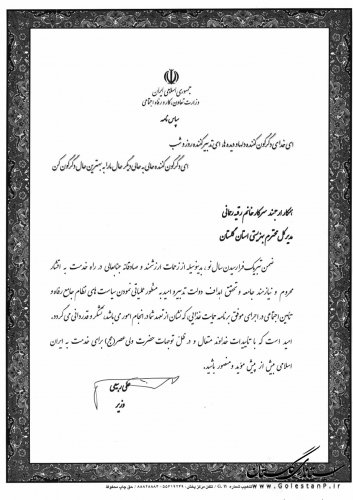 جمهوری اسلامی ایران
وزارت تعاون، کار و رفاه اجتماعی
سپاس نامه
ای خدای دگرگون کننده دلها و دیده ها، ای تدبیر کننده روز و شب
ای دگرگون کننده حالی به حالی دیگر، حال ما را به بهترین حال دگرگون کن
همکار ارجمند سرکار خانم رقیه رحمانی
مدیرکل محترم بهزیستی استان گلستان
ضمن تبریک فرارسیدن سال نو، بدینوسیله از زحمات ارزشمند و صادقانه جنابعالی در راه خدمت به اقشار
محروم و نیازمند جامعه و تحقق اهداف دولت تدبیر و امید به منظور عملیاتی نمودن سیاست های نظام جامع رفاه و
تأمین اجتماعی در اجرای موفق برنامه حمایت غذایی، که نشان از تعهد شما در انجام امور می باشد، تشکر و قدردانی می گردد.
امید است که با تأییدات خداوند متعال و در ظل توجهات حضرت ولی عصر(عج) برای خدمت به ایران
اسلامی بیش از پیش موید و منصور باشید.
علی ربیعی
وزیر
www.GolestanP.ir